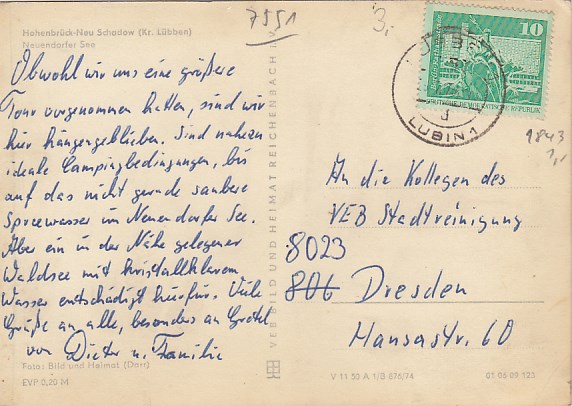 7551
3,-
Hohenbrück-Neu Schadow (Kr. Lübben)
Neuendorfer See
Obwohl wir uns eine größere
Tour vorgenommen hatten, sind wir
hier hängengeblieben. Sind nahezu
ideale Campingbedingungen, bis
auf das nicht gerade saubere
Spreewasser im Neuendorfer See.
Aber ein in der Nähe gelegener
Waldsee mit kristallklarem
Wasser entschädigt hierfür. Viele
Grüße an alle, besonders an Gretel
von Dieter u. Familie
Fotos: Bild und Heimat (Darr)
EVP 0,20 M
VEB BILD UND HEIMAT REICHENBACH I. V.
10
DEUTSCHE DEMOKRATISCHE REPUBLIK
LUBIN 1
9843
1,-
An die Kollegen des
VEB Stadtreinigung
8023
806 Dresden
Hansastr. 60
V 11 50 A 1/B 876/74
01 06 09 123